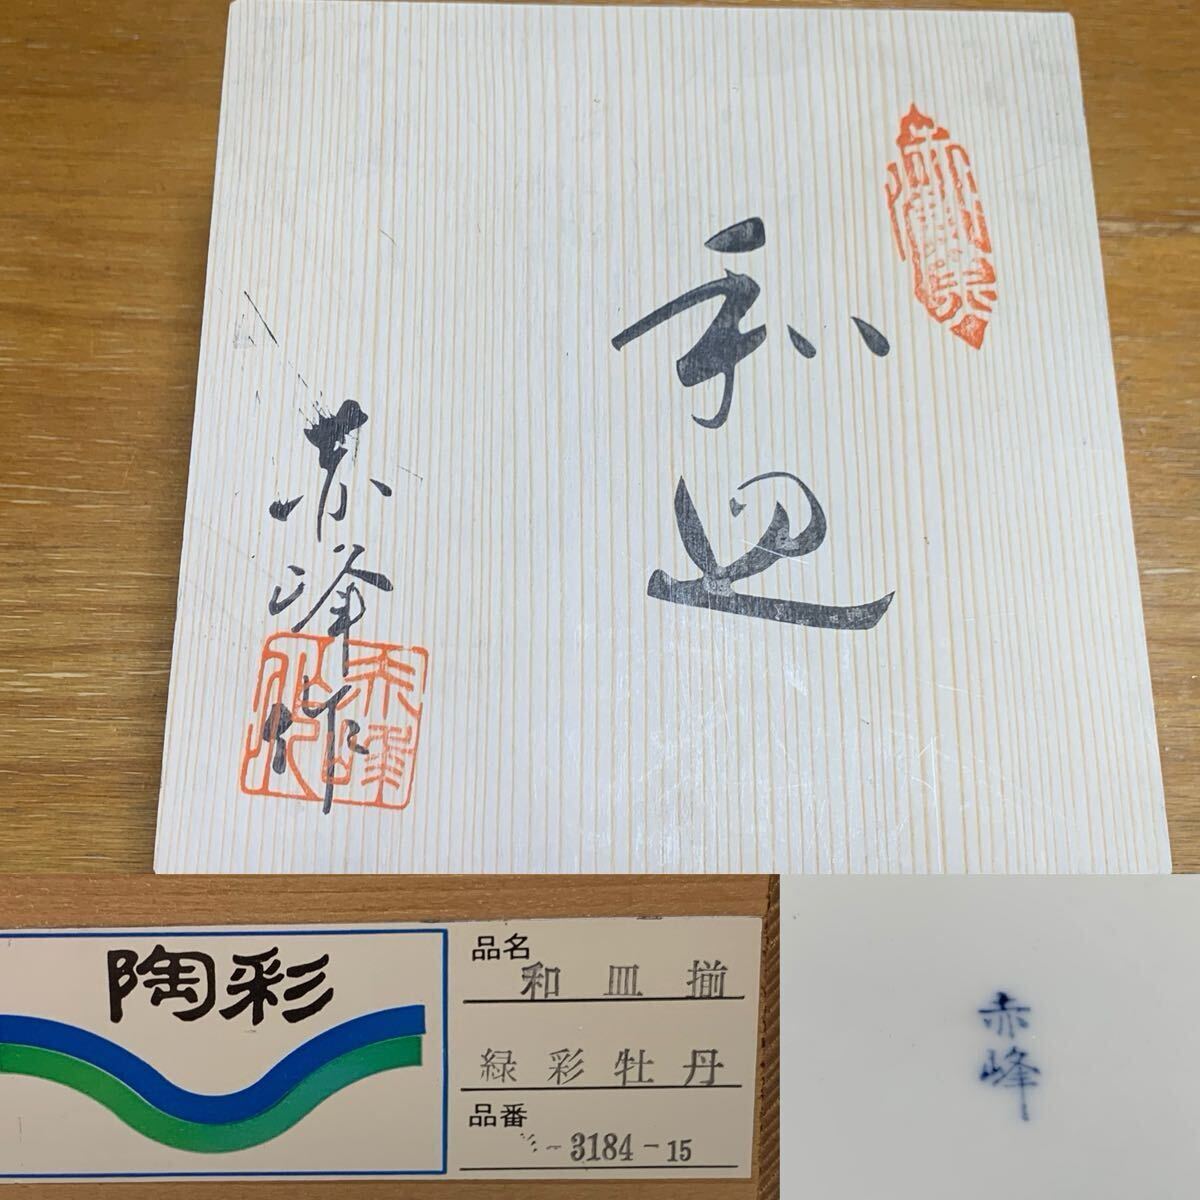 和皿
赤峰作
陶彩
品名
和皿揃
緑彩牡丹
品番
-3184-15
赤峰